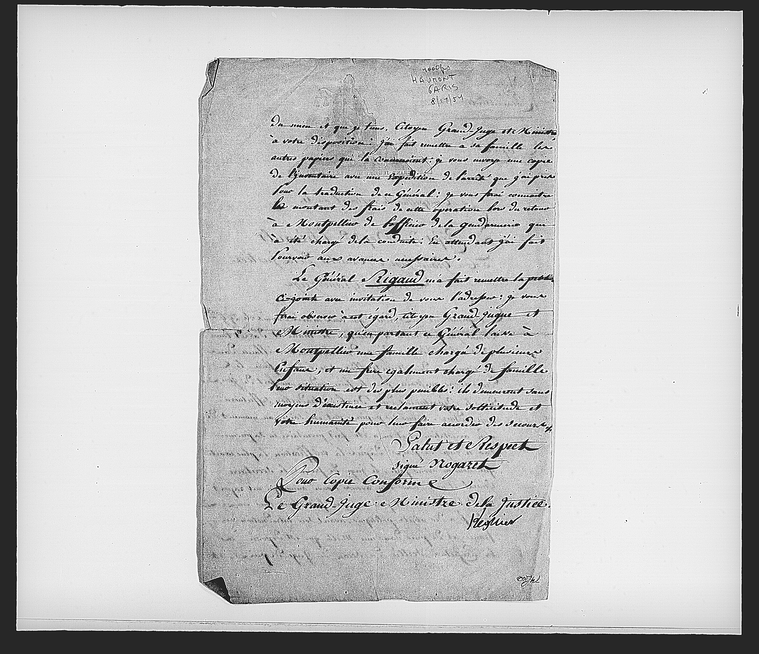 HAUMONT
PARIS
du mien et que je tiens, Citoyen Grand-Juge et Ministre
à votre disposition: j'ai fait remettre à sa famille les
autres papiers qui la concernoient: je vous envoye une copie
de l'Inventaire avec une expédition de l'arrêté que j'ai pris
pour la traduction de ce Général: je vous ferai connaitre
le montant des frais de cette opération lors du retour
à Montpellier de l'officier de la Gendarmerie qui
a été chargé de la conduite: En attendant j'ai fait
pourvoir aux avances nécessaires.
Le Général Rigaud m'a fait remettre la
ci-jointe avec invitation de vous l'adresser: je vous
ferai observer à cet égard, Citoyen Grand-Juge et
Ministre, qu'en partant ce Général laisse à
Montpellier une famille chargée de plusieurs
Enfans, et un frère également chargé de famille
leur situation est des plus pénibles: ils demeurent sans
moyens d'existence et réclament votre sollicitude et
votre humanité pour leur faire accorder des secours.
Salut et Respect
signé Nogaret
Pour Copie Conforme
Le Grand-Juge Ministre de la Justice.
Regnier